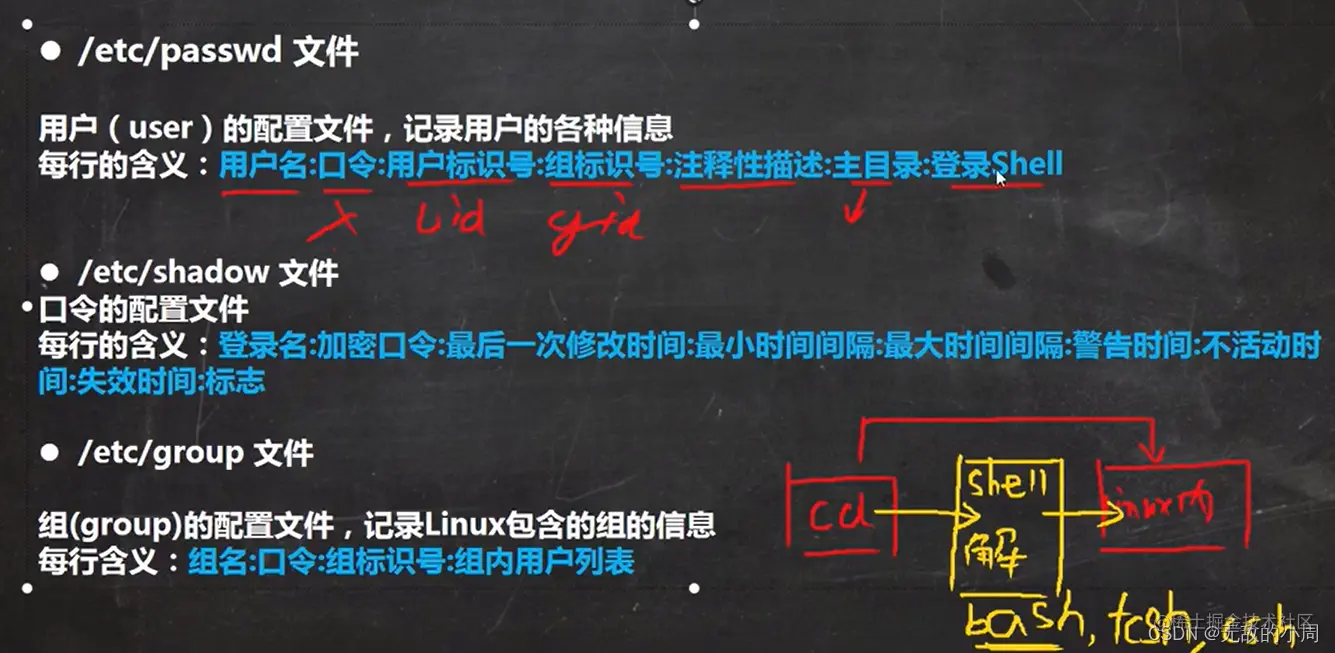 ● /etc/passwd 文件
用户（user）的配置文件，记录用户的各种信息
每行的含义：用户名:口令:用户标识号:组标识号:注释性描述:主目录:登录Shell
x uid gid
● /etc/shadow 文件
•口令的配置文件
每行的含义：登录名:加密口令:最后一次修改时间:最小时间间隔:最大时间间隔:警告时间:不活动时
间:失效时间:标志
● /etc/group 文件
组(group)的配置文件，记录Linux包含的组的信息
每行含义：组名:口令:组标识号:组内用户列表
cd
shell
解
inux内
bash, tcsh, csh,
@稀土掘金技术社区
CSDN @无敌的小周